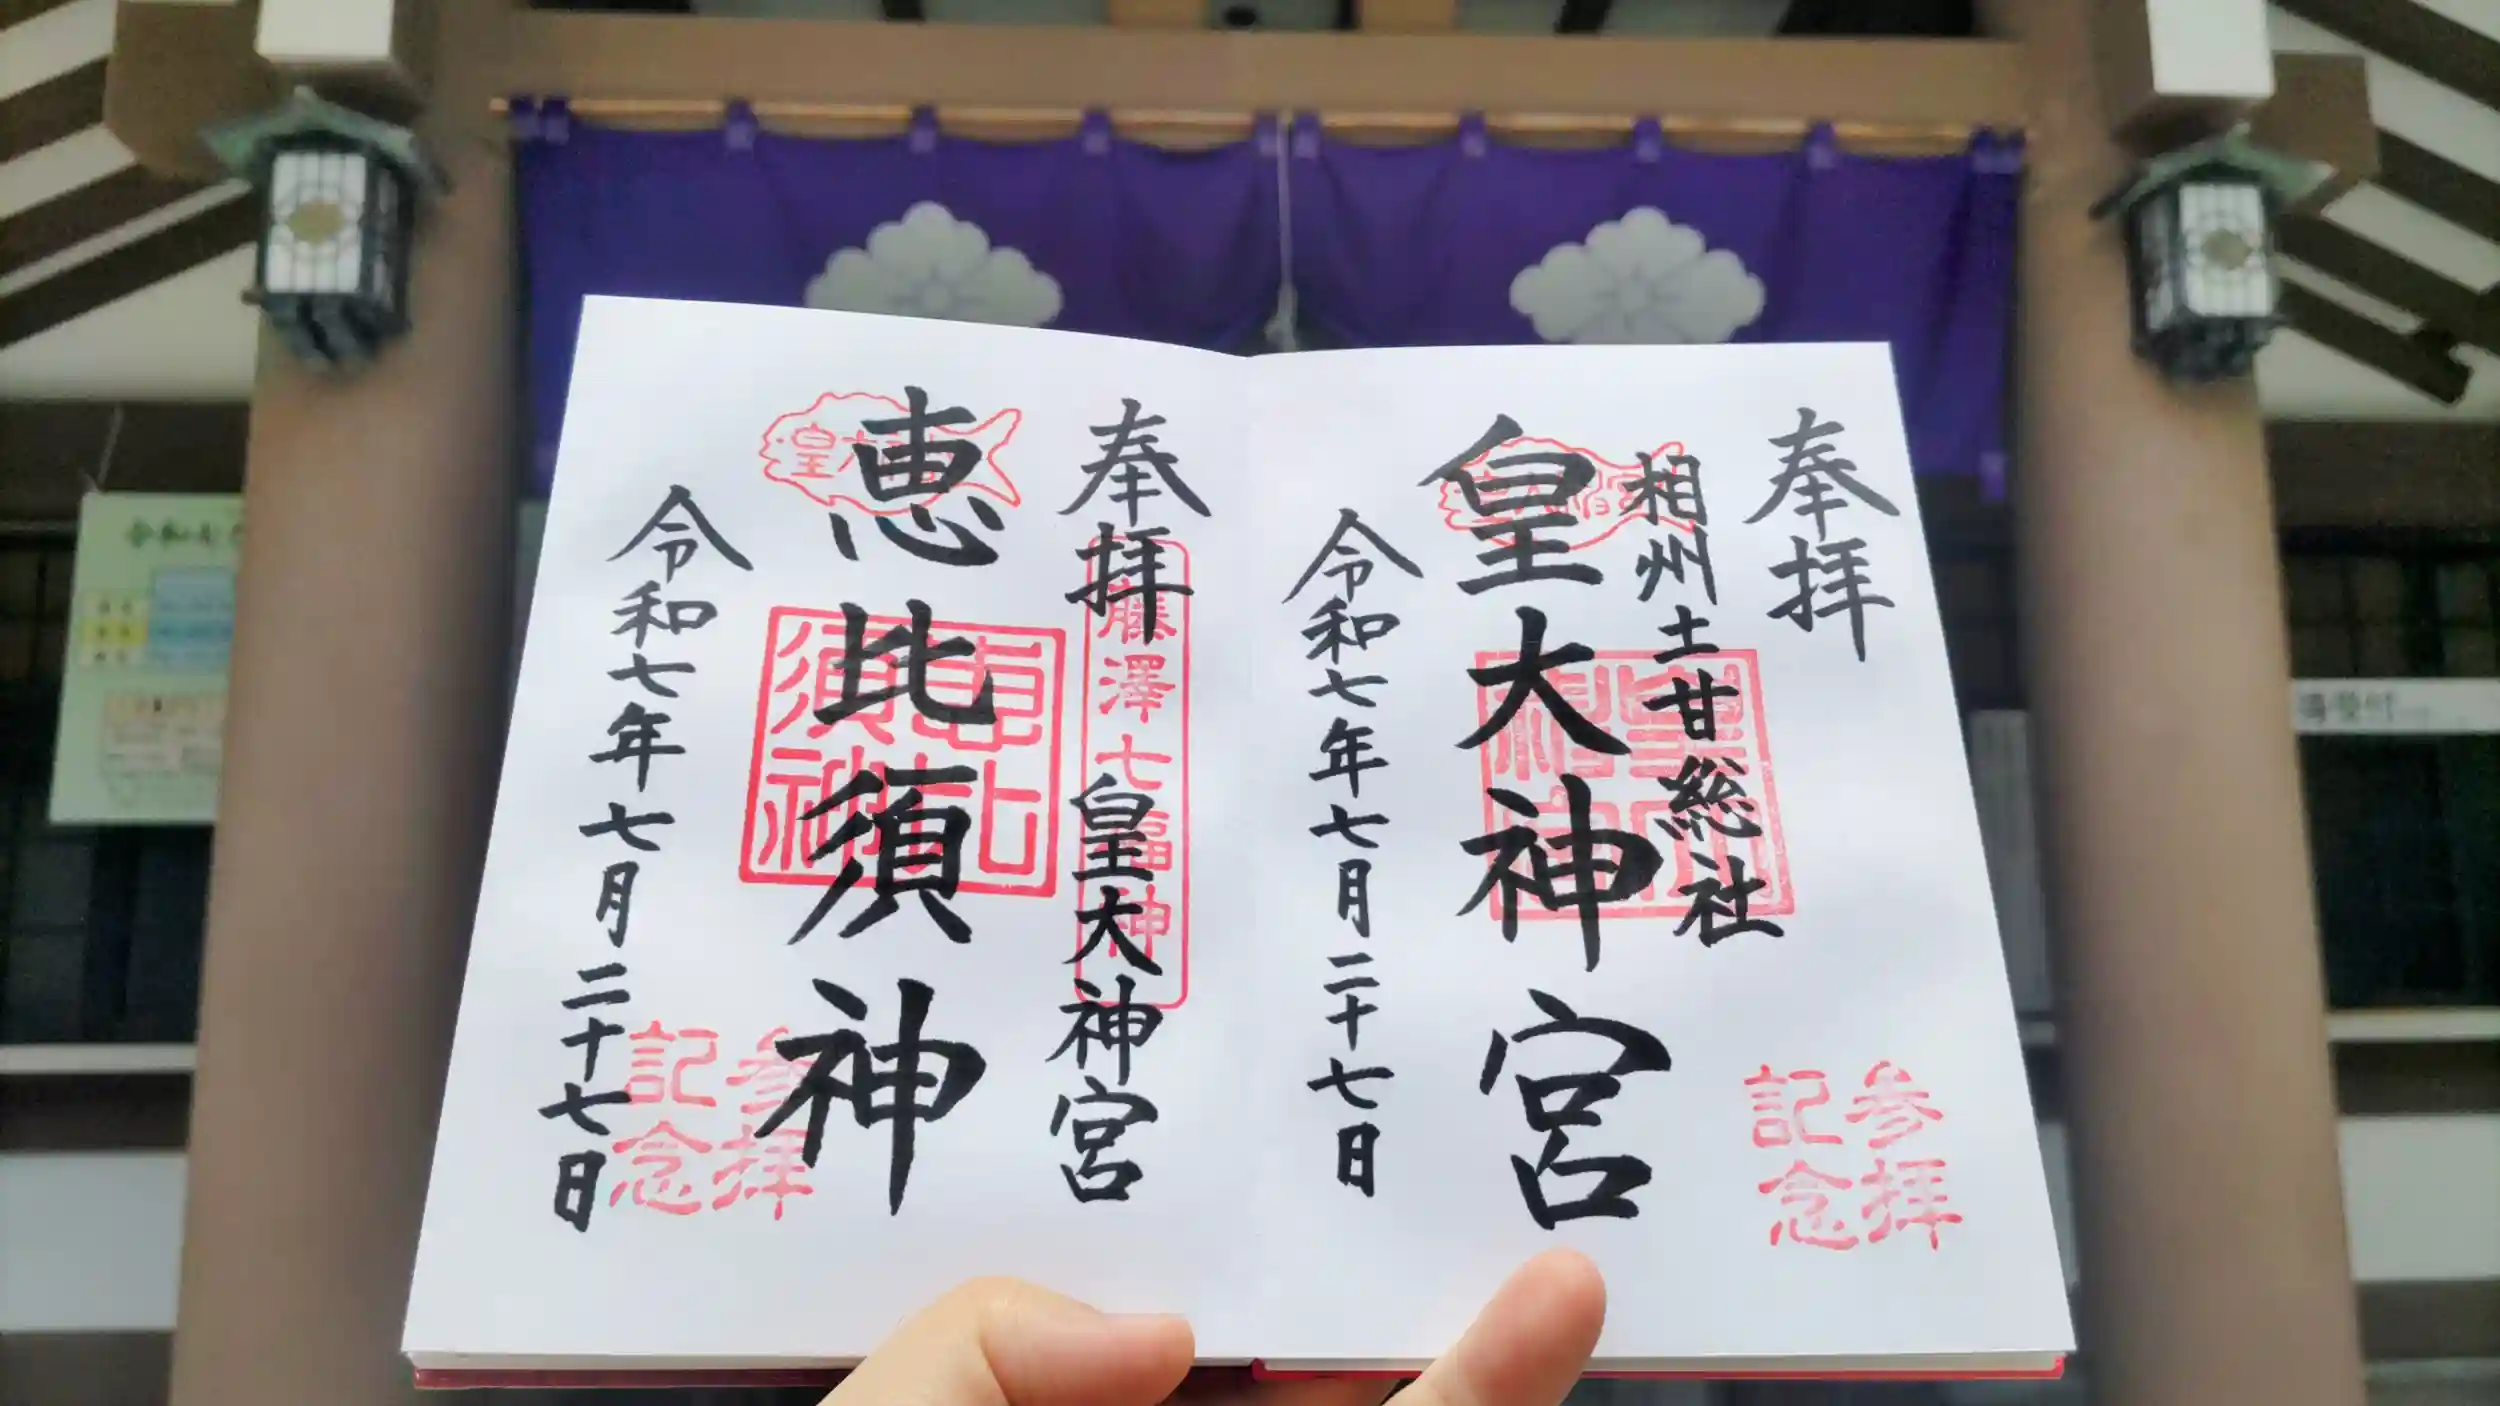 奉拝
相州土甘総社
皇大神宮
令和七年七月二十七日
参拝
記念
奉拝
藤澤七福神
皇大神宮
恵比須神
令和七年七月二十七日
参拝
記念